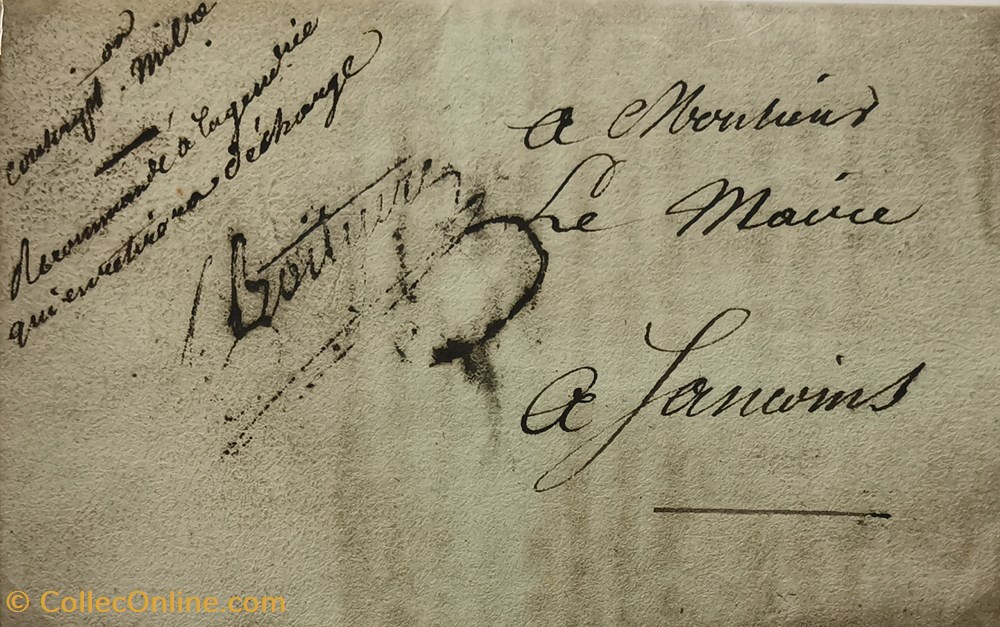 on
contingt. Milre
Recommandé à la gendrie
qui en retirera déchange
a Monsieur
Le Maire
a Sancoins
© CollecOnline.com